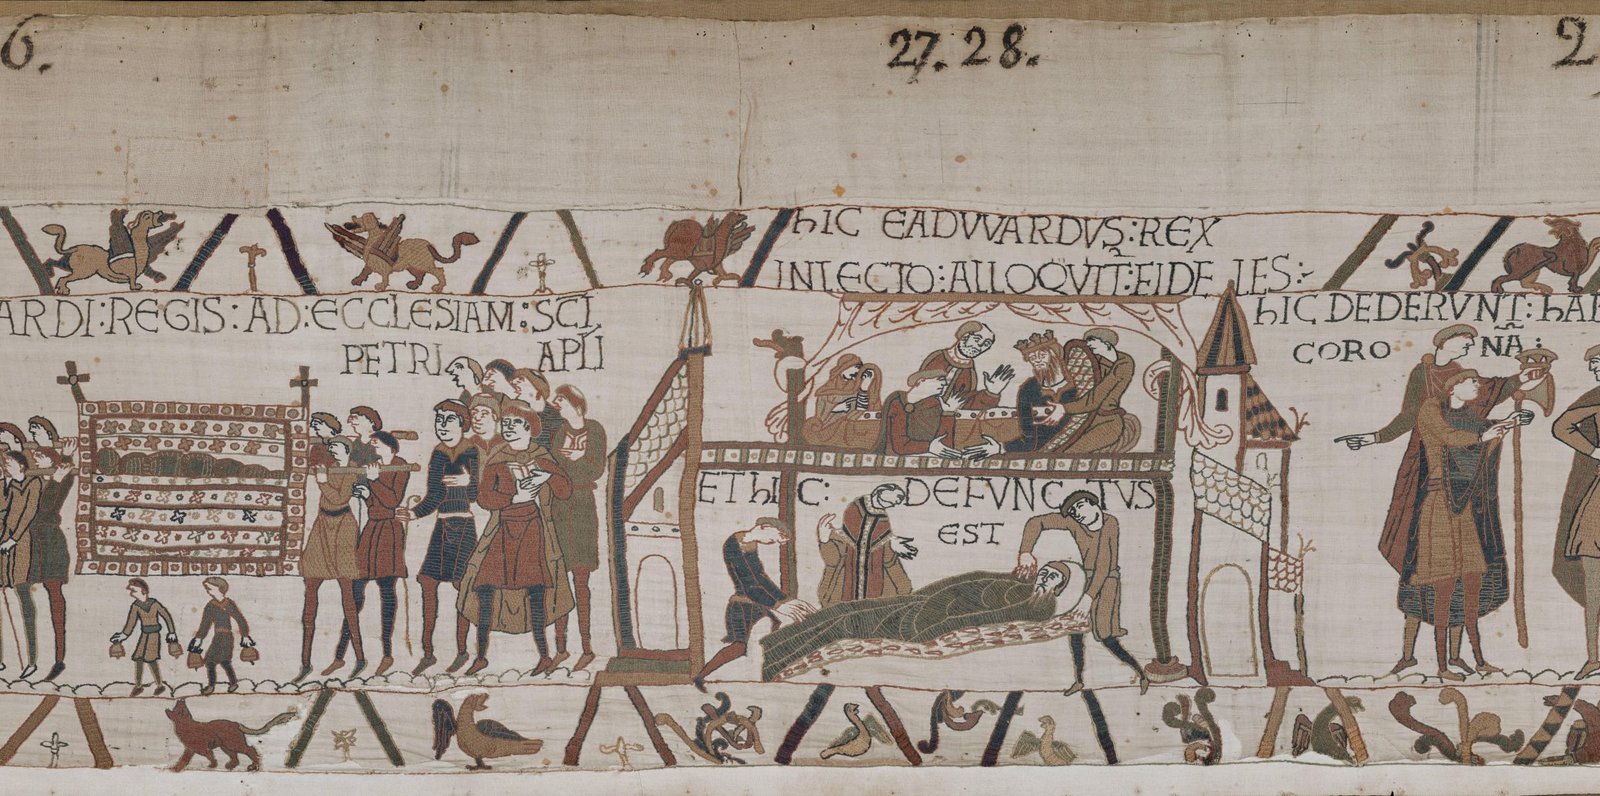 6.
27. 28.
2
ARDI : REGIS : AD : ECCLESIAM : SCI
PETRI APLI
hIC EADVVARDVS : REX
IN LECTO : ALLOQVIT : FIDELES :
ET hIC : DEFVNCTVS
EST
hIC DEDERVNT : hAR
CORONA :